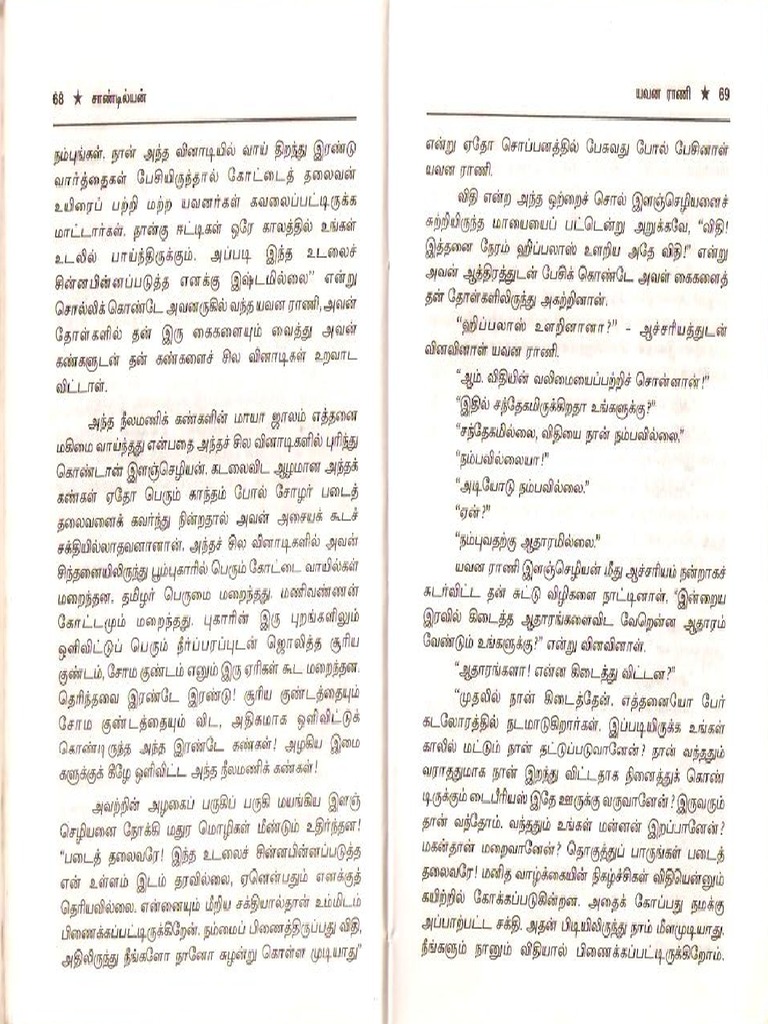 68 ★ சாண்டில்யன்
நம்புங்கள். நான் அந்த வினாடியில் வாய் திறந்து இரண்டு
வார்த்தைகள் பேசியிருந்தால் கோட்டைத் தலைவன்
உயிரைப் பற்றி மற்ற யவனர்கள் கவலைப்பட்டிருக்க
மாட்டார்கள். நான்கு ஈட்டிகள் ஒரே காலத்தில் உங்கள்
உடலில் பாய்ந்திருக்கும். அப்படி இந்த உடலைச்
சின்னபின்னப்படுத்த எனக்கு இஷ்டமில்லை” என்று
சொல்லிக்கொண்டே அவனருகில் வந்த யவன ராணி, அவன்
தோள்களில் தன் இரு கைகளையும் வைத்து அவன்
கண்களுடன் தன் கண்களைச் சில வினாடிகள் உறவாட
விட்டாள்.
அந்த நீலமணிக் கண்களின் மாயா ஜாலம் எத்தனை
மகிமை வாய்ந்தது என்பதை அந்தச் சில வினாடிகளில் புரிந்து
கொண்டான் இளஞ்செழியன். கடலைவிட ஆழமான அந்தக்
கண்கள் ஏதோ பெரும் காந்தம் போல் சோழர் படைத்
தலைவனைக் கவர்ந்து நின்றதால் அவன் அசையக் கூடச்
சக்தியில்லாதவனானான். அந்தச் சில வினாடிகளில் அவன்
சிந்தனையிலிருந்து பூம்புகாரில் பெரும் கோட்டை வாயில்கள்
மறைந்தன. தமிழர் பெருமை மறைந்தது. மணிவண்ணன்
கோட்டமும் மறைந்தது. புகாரின் இரு புறங்களிலும்
ஒளிவிட்டுப் பெரும் நீர்ப்பரப்புடன் ஜொலித்த சூரிய
குண்டம், சோம குண்டம் எனும் இரு ஏரிகள் கூட மறைந்தன.
தெரிந்தவை இரண்டே இரண்டு! சூரிய குண்டத்தையும்
சோம குண்டத்தையும் விட, அதிகமாக ஒளிவிட்டுக்
கொண்டிருந்த அந்த இரண்டே கண்கள்! அழகிய இமை
களுக்குக் கீழே ஒளிவிட்ட அந்த நீலமணிக் கண்கள்!
அவற்றின் அழகைப் பருகிப் பருகி மயங்கிய இளஞ்
செழியனை நோக்கி மதுர மொழிகள் மீண்டும் உதிர்ந்தன!
“படைத் தலைவரே! இந்த உடலைச் சின்னபின்னப்படுத்த
என் உள்ளம் இடம் தரவில்லை, ஏனென்பதும் எனக்குத்
தெரியவில்லை. என்னையும் மீறிய சக்தியால்தான் உம்மிடம்
பிணைக்கப்பட்டிருக்கிறேன். நம்மைப் பிணைத்திருப்பது விதி,
அதிலிருந்து நீங்களோ நானோ சுழன்று கொள்ள முடியாது”
யவன ராணி ★ 69
என்று ஏதோ சொப்பனத்தில் பேசுவது போல் பேசினாள்
யவன ராணி.
விதி என்ற அந்த ஒற்றைச் சொல் இளஞ்செழியனைச்
சுற்றியிருந்த மாயையைப் பட்டென்று அறுக்கவே, “விதி!
இத்தனை நேரம் ஹிப்பலாஸ் உளறிய அதே விதி!” என்று
அவன் ஆத்திரத்துடன் பேசிக் கொண்டே அவள் கைகளைத்
தன் தோள்களிலிருந்து அகற்றினான்.
“ஹிப்பலாஸ் உளறினானா?” – ஆச்சரியத்துடன்
வினவினாள் யவன ராணி.
“ஆம். விதியின் வலிமையைப்பற்றிச் சொன்னான்!”
“இதில் சந்தேகமிருக்கிறதா உங்களுக்கு?”
“சந்தேகமில்லை, விதியை நான் நம்பவில்லை.”
“நம்பவில்லையா!”
“அடியோடு நம்பவில்லை.”
“ஏன்?”
“நம்புவதற்கு ஆதாரமில்லை.”
யவன ராணி இளஞ்செழியன் மீது ஆச்சரியம் நன்றாகச்
சுடர்விட்ட தன் சுட்டு விழிகளை நாட்டினாள். “இன்றைய
இரவில் கிடைத்த ஆதாரங்களைவிட வேறென்ன ஆதாரம்
வேண்டும் உங்களுக்கு?” என்று வினவினாள்.
“ஆதாரங்களா! என்ன கிடைத்து விட்டன?”
“முதலில் நான் கிடைத்தேன். எத்தனையோ பேர்
கடலோரத்தில் நடமாடுகிறார்கள். இப்படியிருக்க உங்கள்
காலில் மட்டும் நான் தட்டுப்படுவானேன்? நான் வந்ததும்
வராததுமாக நான் இறந்து விட்டதாக நினைத்துக் கொண்
டிருக்கும் டைபீரியஸ் இதே ஊருக்கு வருவானேன்? இருவரும்
தான் வந்தோம். வந்ததும் உங்கள் மன்னன் இறப்பானேன்?
மகன்தான் மறைவானேன்? தொகுத்துப் பாருங்கள் படைத்
தலைவரே! மனித வாழ்க்கையின் நிகழ்ச்சிகள் விதியென்னும்
கயிற்றில் கோக்கப்படுகின்றன. அதைக் கோப்பது நமக்கு
அப்பாற்பட்ட சக்தி. அதன் பிடியிலிருந்து நாம் மீளமுடியாது.
நீங்களும் நானும் விதியால் பிணைக்கப்பட்டிருக்கிறோம்.